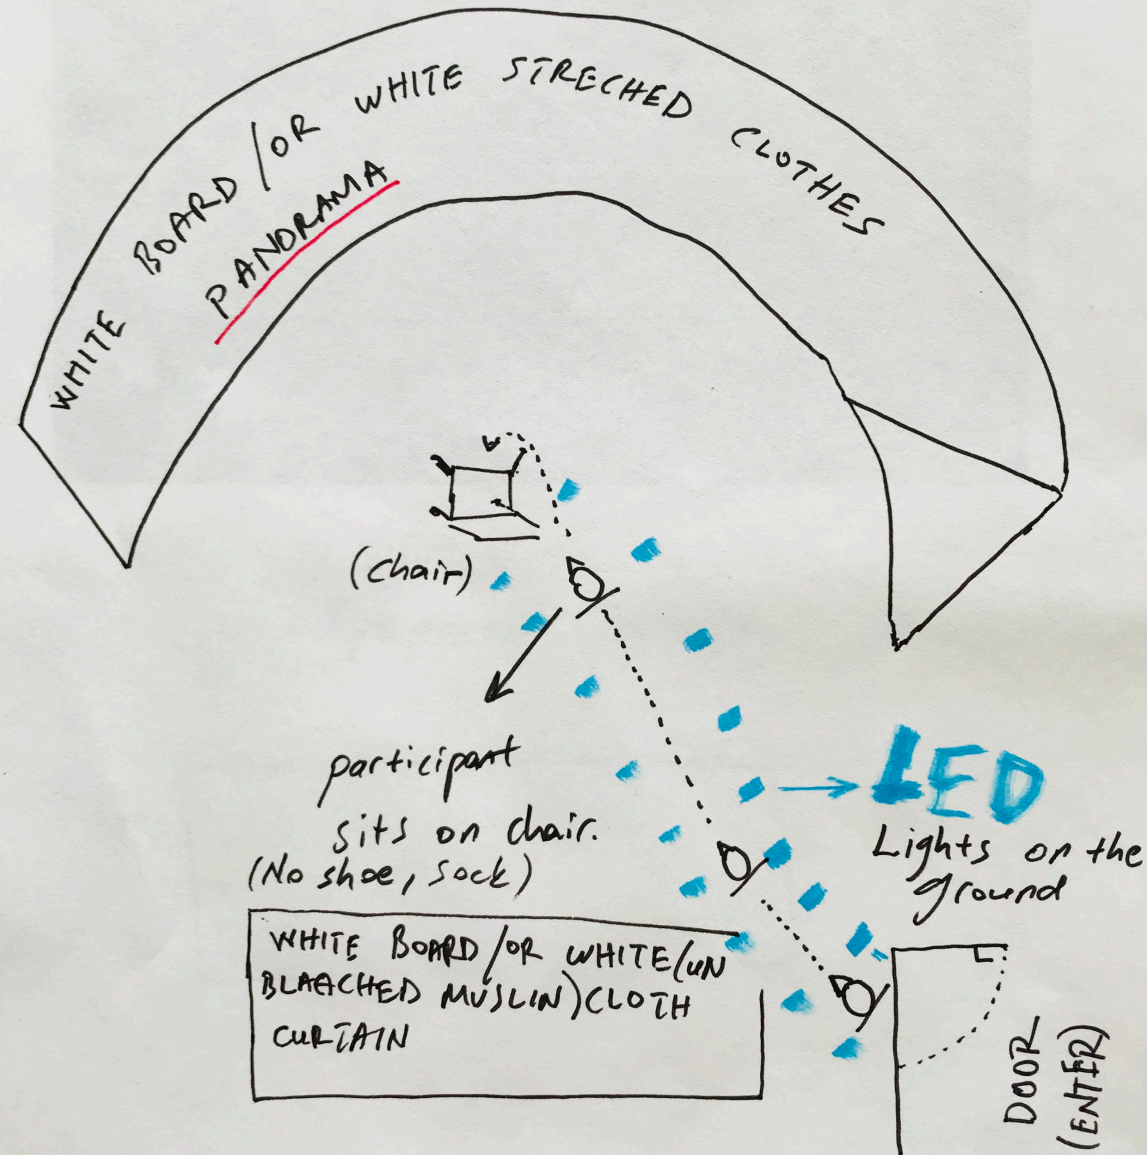 WHITE BOARD/OR WHITE STRECHED CLOTHES
PANORAMA
(chair)
participant
sits on chair.
(No shoe, sock)
LED
Lights on the
ground
WHITE BOARD/OR WHITE(UN
BLAACHED MUSLIN)CLOTH
CURTAIN
DOOR
(ENTER)